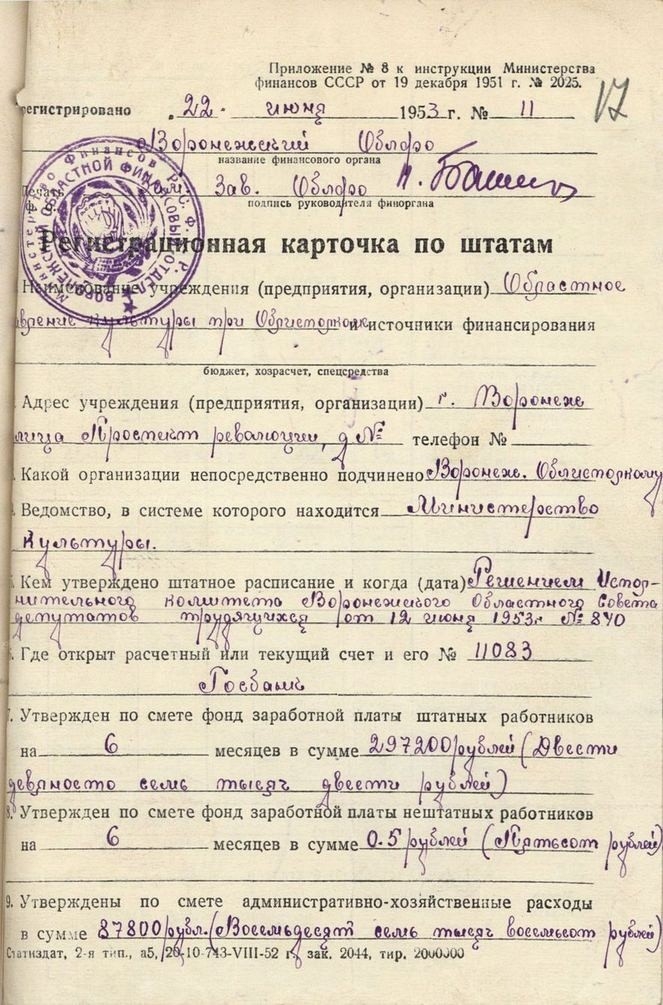 Приложение № 8 к инструкции Министерства
финансов СССР от 19 декабря 1951 г. № 2025.
17
регистрировано „22 июня 1953 г. № 11
Воронежский Облфо
название финансового органа
Печать Зав. Облфо
подпись руководителя финоргана
Министерство Финансов Р.С.Ф.С.Р.
ВОРОНЕЖСКИЙ ОБЛАСТНОЙ ФИНАНСОВЫЙ ОТДЕЛ
Регистрационная карточка по штатам
Наименование учреждения (предприятия, организации) Областное
авление культуры при Облисполкоме и источники финансирования
бюджет, хозрасчет, спецсредства
Адрес учреждения (предприятия, организации) г. Воронеж
лица Проспект революции, д № телефон №
Какой организации непосредственно подчинено Воронеж. Облисполкому
Ведомство, в системе которого находится Министерство
культуры.
5. Кем утверждено штатное расписание и когда (дата) Решением Испол-
нительного комитета Воронежского Областного Совета
депутатов трудящихся от 12 июня 1953г № 840
6. Где открыт расчетный или текущий счет и его № 11083
Госбанк
7. Утвержден по смете фонд заработной платы штатных работников
на 6 месяцев в сумме 297200 рублей (Двести
девяносто семь тысяч двести рублей)
8. Утвержден по смете фонд заработной платы нештатных работников
на 6 месяцев в сумме 0.5 рублей (Пятьсот рублей)
9. Утверждены по смете административно-хозяйственные расходы
в сумме 87800 рубл. (Восемьдесят семь тысяч восемьсот рублей)
Статиздат, 2-я тип., а5, 20-10-743-VIII-52 г. зак. 2044, тир. 2000000